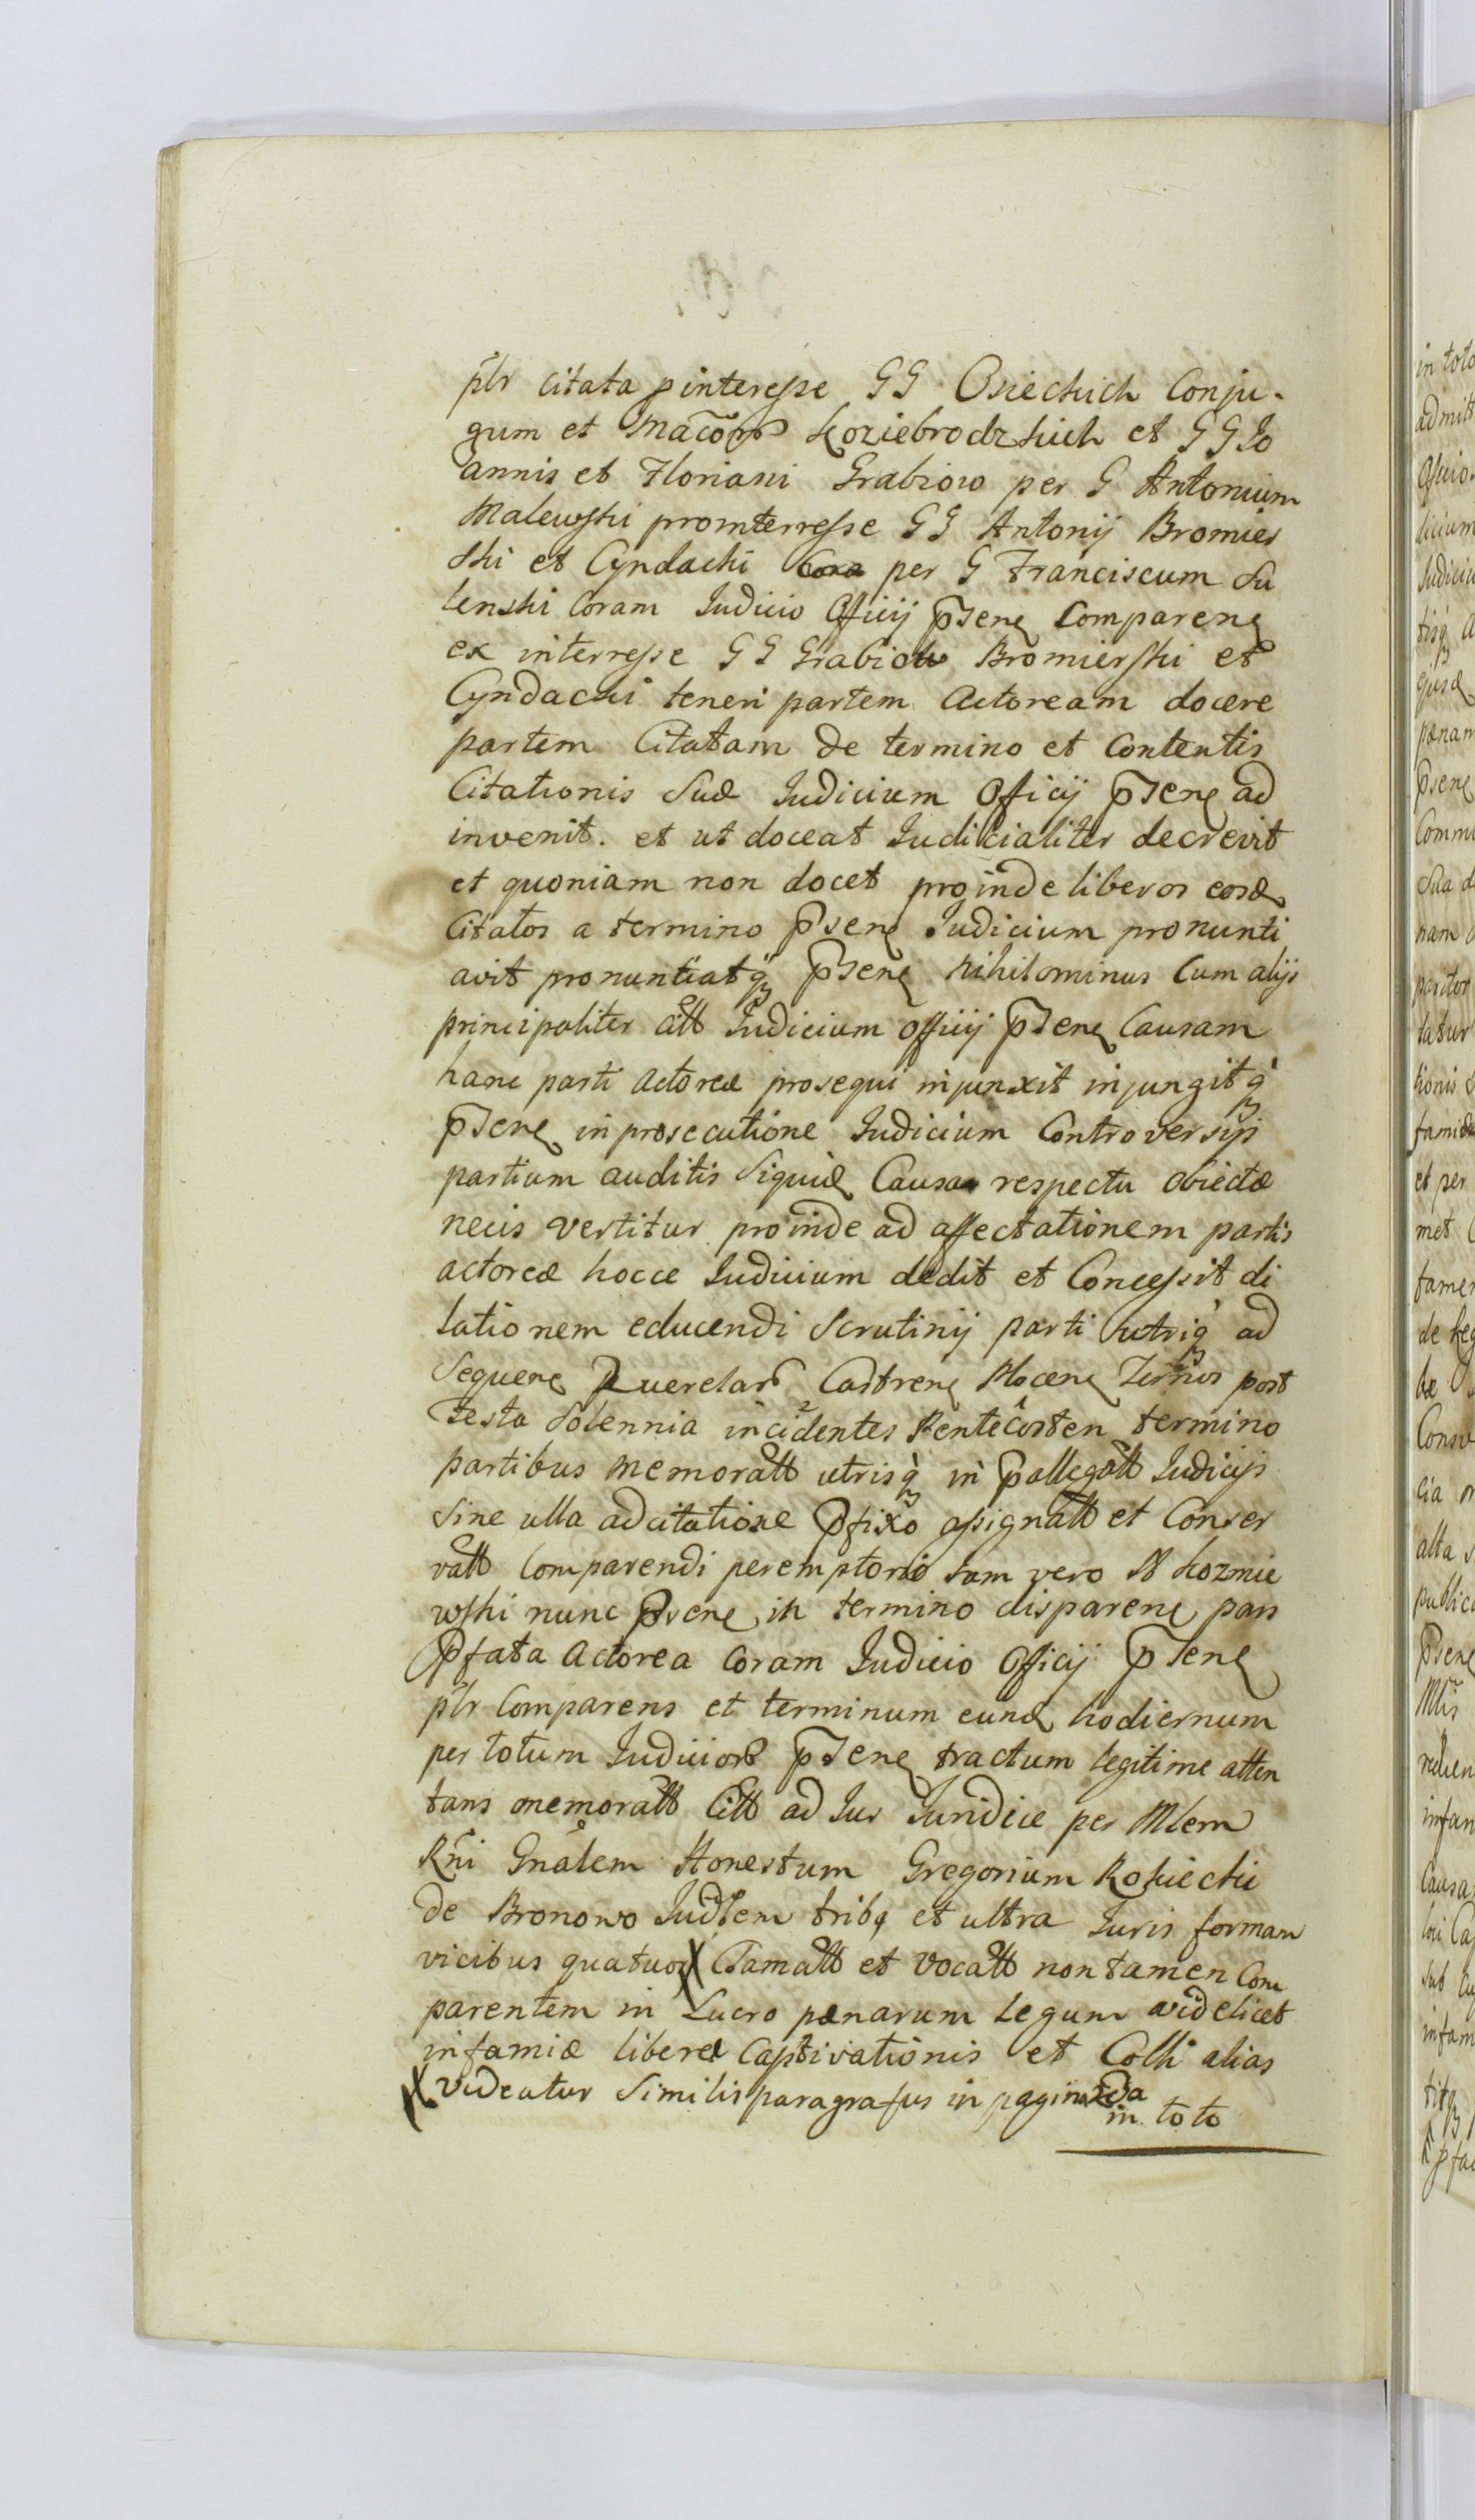 p̄lr citata pinteresse GG Osieckich Conju-
gum et Macōrs Koziebrodzkich et GG Jo
annis et Floriani Grabiow per G Antonium
Malewski prointerresse GG Antonij Bromier
ski et Cyndacki per G Franciscum Su
lenski Coram Iudicio Officij p̄senę Comparenę
ex interresse GG Grabiow Bromierski et
Cyndacki teneri partem Actoream docere
partem Citatam de termino et Contentis
Citationis Suæ Iudicium Officij p̄senę ad
invenit. et ut doceat Iudicialiter decrevit
et quoniam non docet proinde liberos eosd
Citatos a termino p̄senę Iudicium pronunti
avit pronuntiatq̄ p̄senę nihilominus Cum alijs
principaliter Citt Iudicium officij p̄senę Causam
hanc parti Actoreæ prosequi injunxit injungitq̄
p̄senę in prosecutione Iudicium Controversijs
partium auditis Siquid Causa respectu obiectæ
necis vertitur proinde ad affectationem partis
actoreæ hocce Iudicium dedit et Concessit di
lationem educendi Scrutinij parti utriq̄ ad
Sequenę Querelars Castrenę Plocenę Ternos post
festa Solennia incidentes Pentecosten termino
partibus memoratt utrisq̄ in pallegatt Iudicijs
Sine ulla adcitatione pfixo assignatt et Conser
vatt Comparendi peremptorio tam vero N Kozmie
wski nunc p̄senę in termino disparenę pars
pfata Actorea Coram Iudicio Officij p̄senę
p̄lr Comparens et terminum eund hodiernum
per totum Iudiciors p̄senę tractum legitime atten
tans memoratt Citt ad Jus Iuridice per Mlem
Rñi Gnalem Honestum Gregorium Rokicki
de Bronowo Iudlem tribq et ultra Iuris formam
vicibus quatuor X Clamatt et vocatt non tamen Com
parentem in Lucro pænarum Legum videlicet
infamiæ liberæ Captivationis et Colli alias
X Videatur Similis paragrafus in pagina
in toto